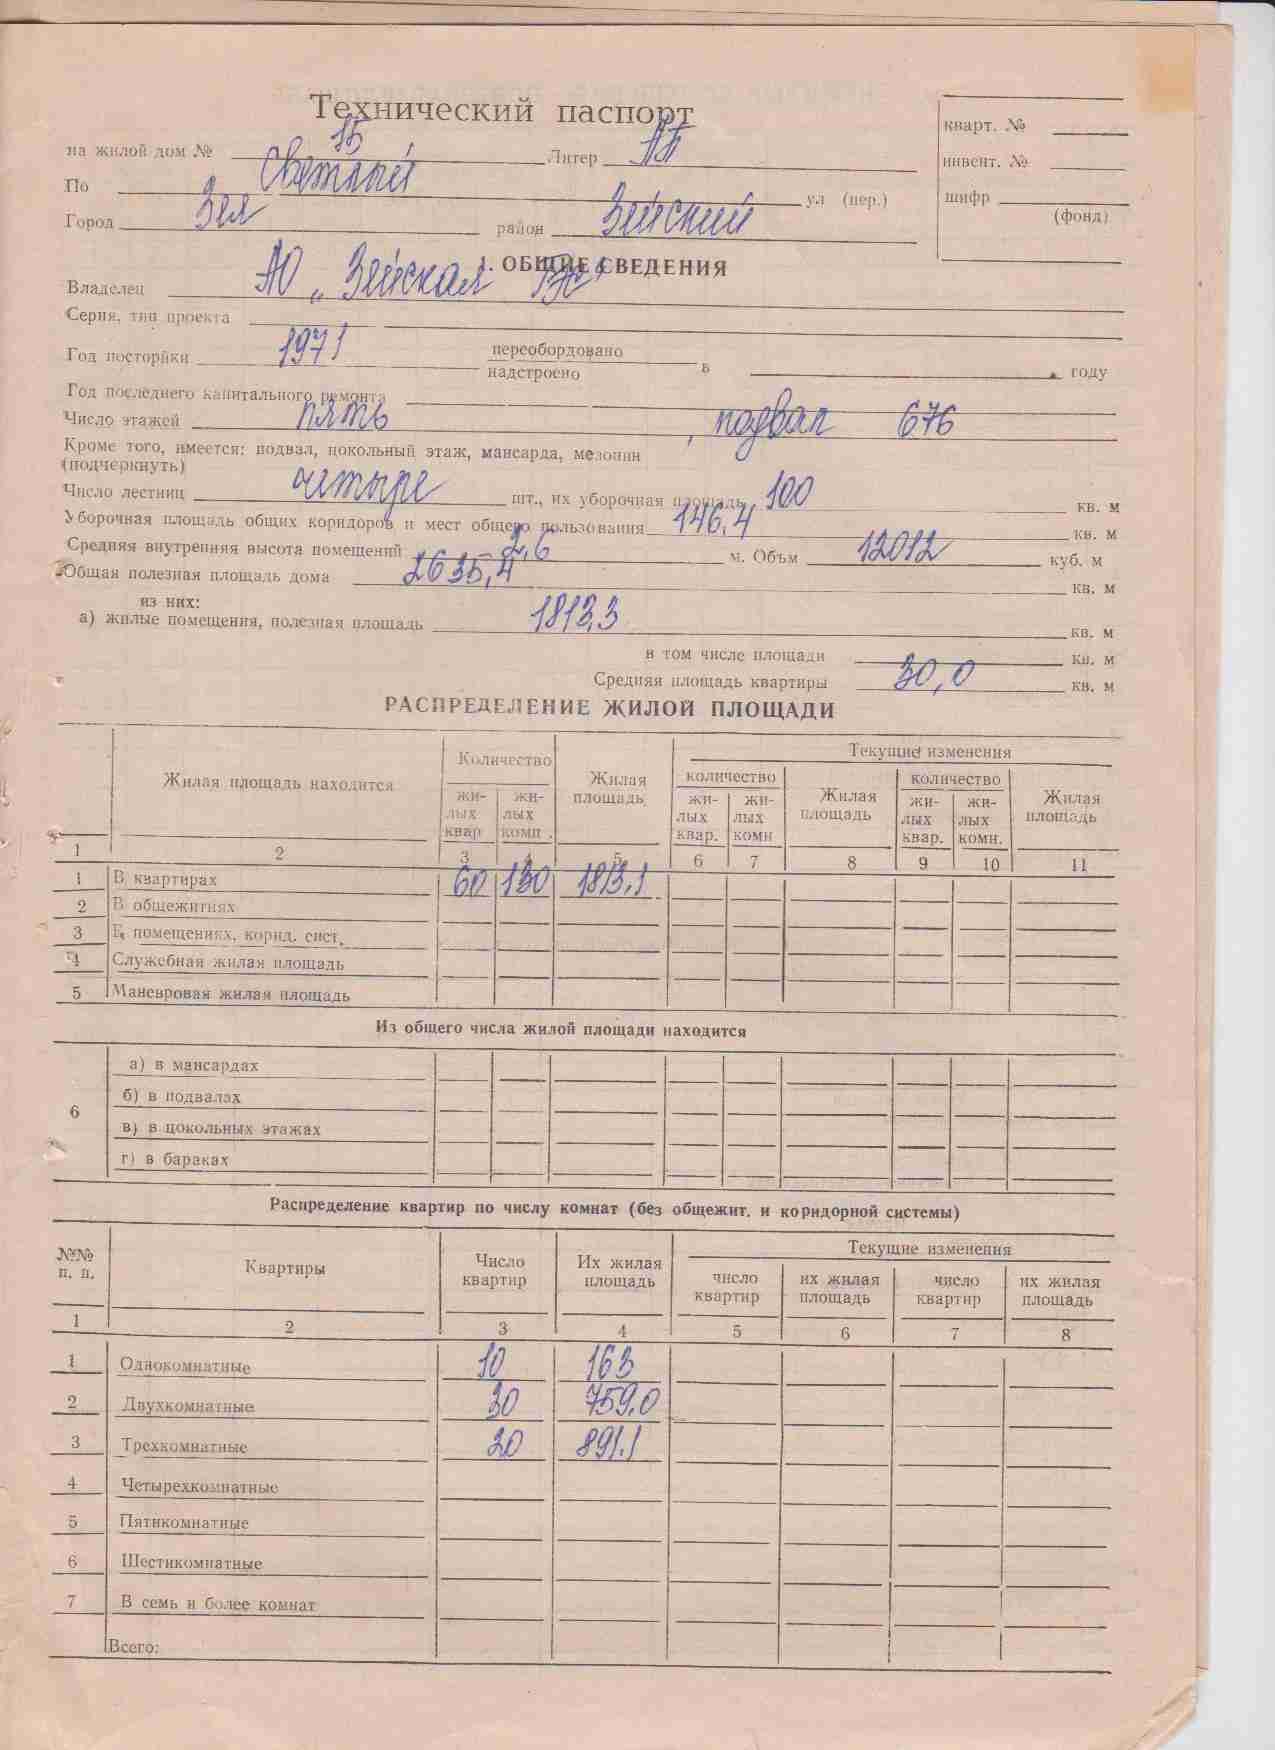 Технический паспорт
кварт. №
на жилой дом № 15 Литер АП
инвент. №
По Светлый ул (пер.)
шифр
(фонд)
Город Зея район Зейский
1. ОБЩИЕ СВЕДЕНИЯ
Владелец АО „Зейская ГЭС"
Серия, тип проекта
Год посторйки 1971 переобордовано
надстроено в году
Год последнего капитального ремонта
Число этажей пять , подвал 676
Кроме того, имеется: подвал, цокольный этаж, мансарда, мезонин
(подчеркнуть)
Число лестниц четыре шт., их уборочная площадь 100 кв. м
Уборочная площадь общих коридоров и мест общего пользования 146,4 кв. м
Средняя внутренняя высота помещений 2,6 м. Объм 12012 куб. м
Общая полезная площадь дома 2635,4 кв. м
из них:
а) жилые помещения, полезная площадь 1813,3 кв. м
в том числе площади кв. м
Средняя площадь квартиры 30,0 кв. м
РАСПРЕДЕЛЕНИЕ ЖИЛОЙ ПЛОЩАДИ
Жилая площадь находится
Количество
жи-
лых
квар
жи-
лых
комн.
Жилая
площадь
Текущие изменения
количество
жи-
лых
квар.
жи-
лых
комн
Жилая
площадь
количество
жи-
лых
квар.
жи-
лых
комн.
Жилая
площадь
1 2 3 4 5 6 7 8 9 10 11
1 В квартирах 60 130 1813,1
2 В общежитиях
3 В помещениях, корид. сист.
4 Служебная жилая площадь
5 Маневровая жилая площадь
Из общего числа жилой площади находится
6
а) в мансардах
б) в подвалах
в) в цокольных этажах
г) в бараках
Распределение квартир по числу комнат (без общежит. и коридорной системы)
№№
п. п.
Квартиры
Число
квартир
Их жилая
площадь
Текущие изменения
число
квартир
их жилая
площадь
число
квартир
их жилая
площадь
1 2 3 4 5 6 7 8
1 Однокомнатные 10 163
2 Двухкомнатные 30 759,0
3 Трехкомнатные 20 891,1
4 Четырехкомнатные
5 Пятикомнатные
6 Шестикомнатные
7 В семь и более комнат
Всего: